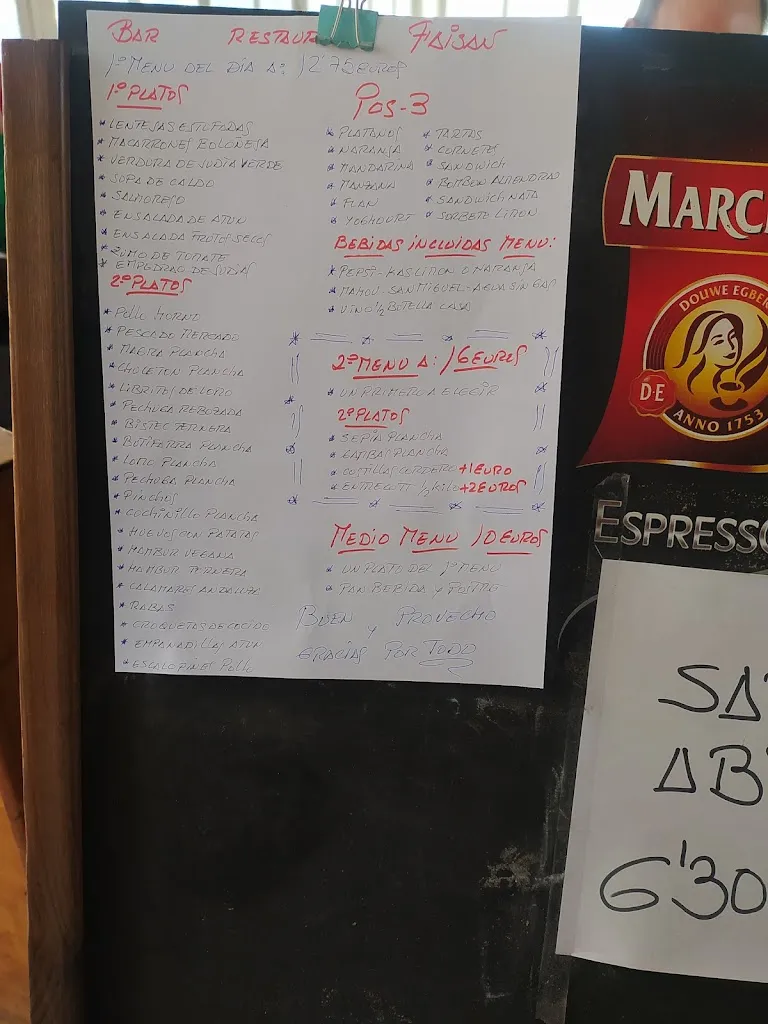 BAR RESTAUR FAISAN
1º MENU DEL DIA A: 12'75 EUROS
1º PLATOS
* LENTEJAS ESTUFADAS
* MACARRONES BOLOÑESA
* VERDURA DE JUDIA VERDE
* SOPA DE CALDO
* SALMOREJO
* ENSALADA DE ATUN
* ENSALADA FRUTOS SECOS
* ZUMO DE TOMATE
* EMPEDRAO DE JUDIAS
2º PLATOS
* POLLO HORNO
* PESCADO MERCADO
* MAGRA PLANCHA
* CHULETON PLANCHA
* LIBRITOS DE LOMO
* PECHUGA REBOZADA
* BISTEC TERNERA
* BUTIFARRA PLANCHA
* LOMO PLANCHA
* PECHUGA PLANCHA
* PINCHOS
* COCHINILLO PLANCHA
* HUEVOS CON PATATAS
* HAMBUR VEGANA
* HAMBUR TERNERA
* CALAMARES ANDALUZE
* RABAS
* CROQUETAS DE COCIDO
* EMPANADILLAS ATUN
* ESCALOPINES POLLO
POS-3
* PLATANOS
* NARANJA
* MANDARINA
* MANZANA
* FLAN
* YOGHOURT
* TARTAS
* CORNETES
* SANDWICH
* BOMBON ALMENDRAO
* SANDWICH NATA
* SORBETE LIMON
BEBIDAS INCLUIDAS MENU:
* PEPSI-KAS LIMON O NARANJA
* MAHOU. SAN MIGUEL-AGUA SIN GAS
* VINO ½ BOTELLA CASA
2º MENU A: 16 EUROS
* UN PRIMERO A ELEGIR
2º PLATOS
* SEPIA PLANCHA
* GAMBAS PLANCHA
* COSTILLAS CORDERO +1 EURO
* ENTRECOTT ½ KILO +2 EUROS
MEDIO MENU 10 EUROS
* UN PLATO DEL 1º MENU
* PAN BEBIDA Y POSTRE
BUEN PROVECHO
Y
GRACIAS POR TODO
MARC
DOUWE EGBER
D·E
ANNO 1753
ESPRESSO
SA
AB
6'30